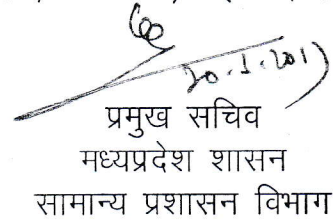 20.1.2017
प्रमुख सचिव
मध्यप्रदेश शासन
सामान्य प्रशासन विभाग